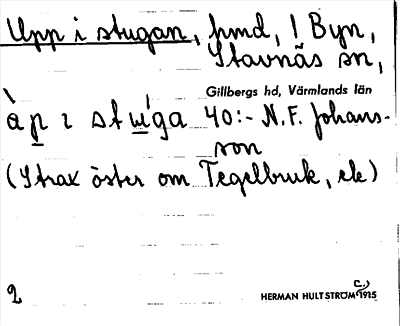 Upp i stugan, hmd, 1 Byn,
Stavnäs sn,
Gillbergs hd, Värmlands län
àp ı stẃga 40:- N.F. Johans-
son
(Strax öster om Tegelbruk, ek)
2
HERMAN HULTSTRÖM (C.) 1915